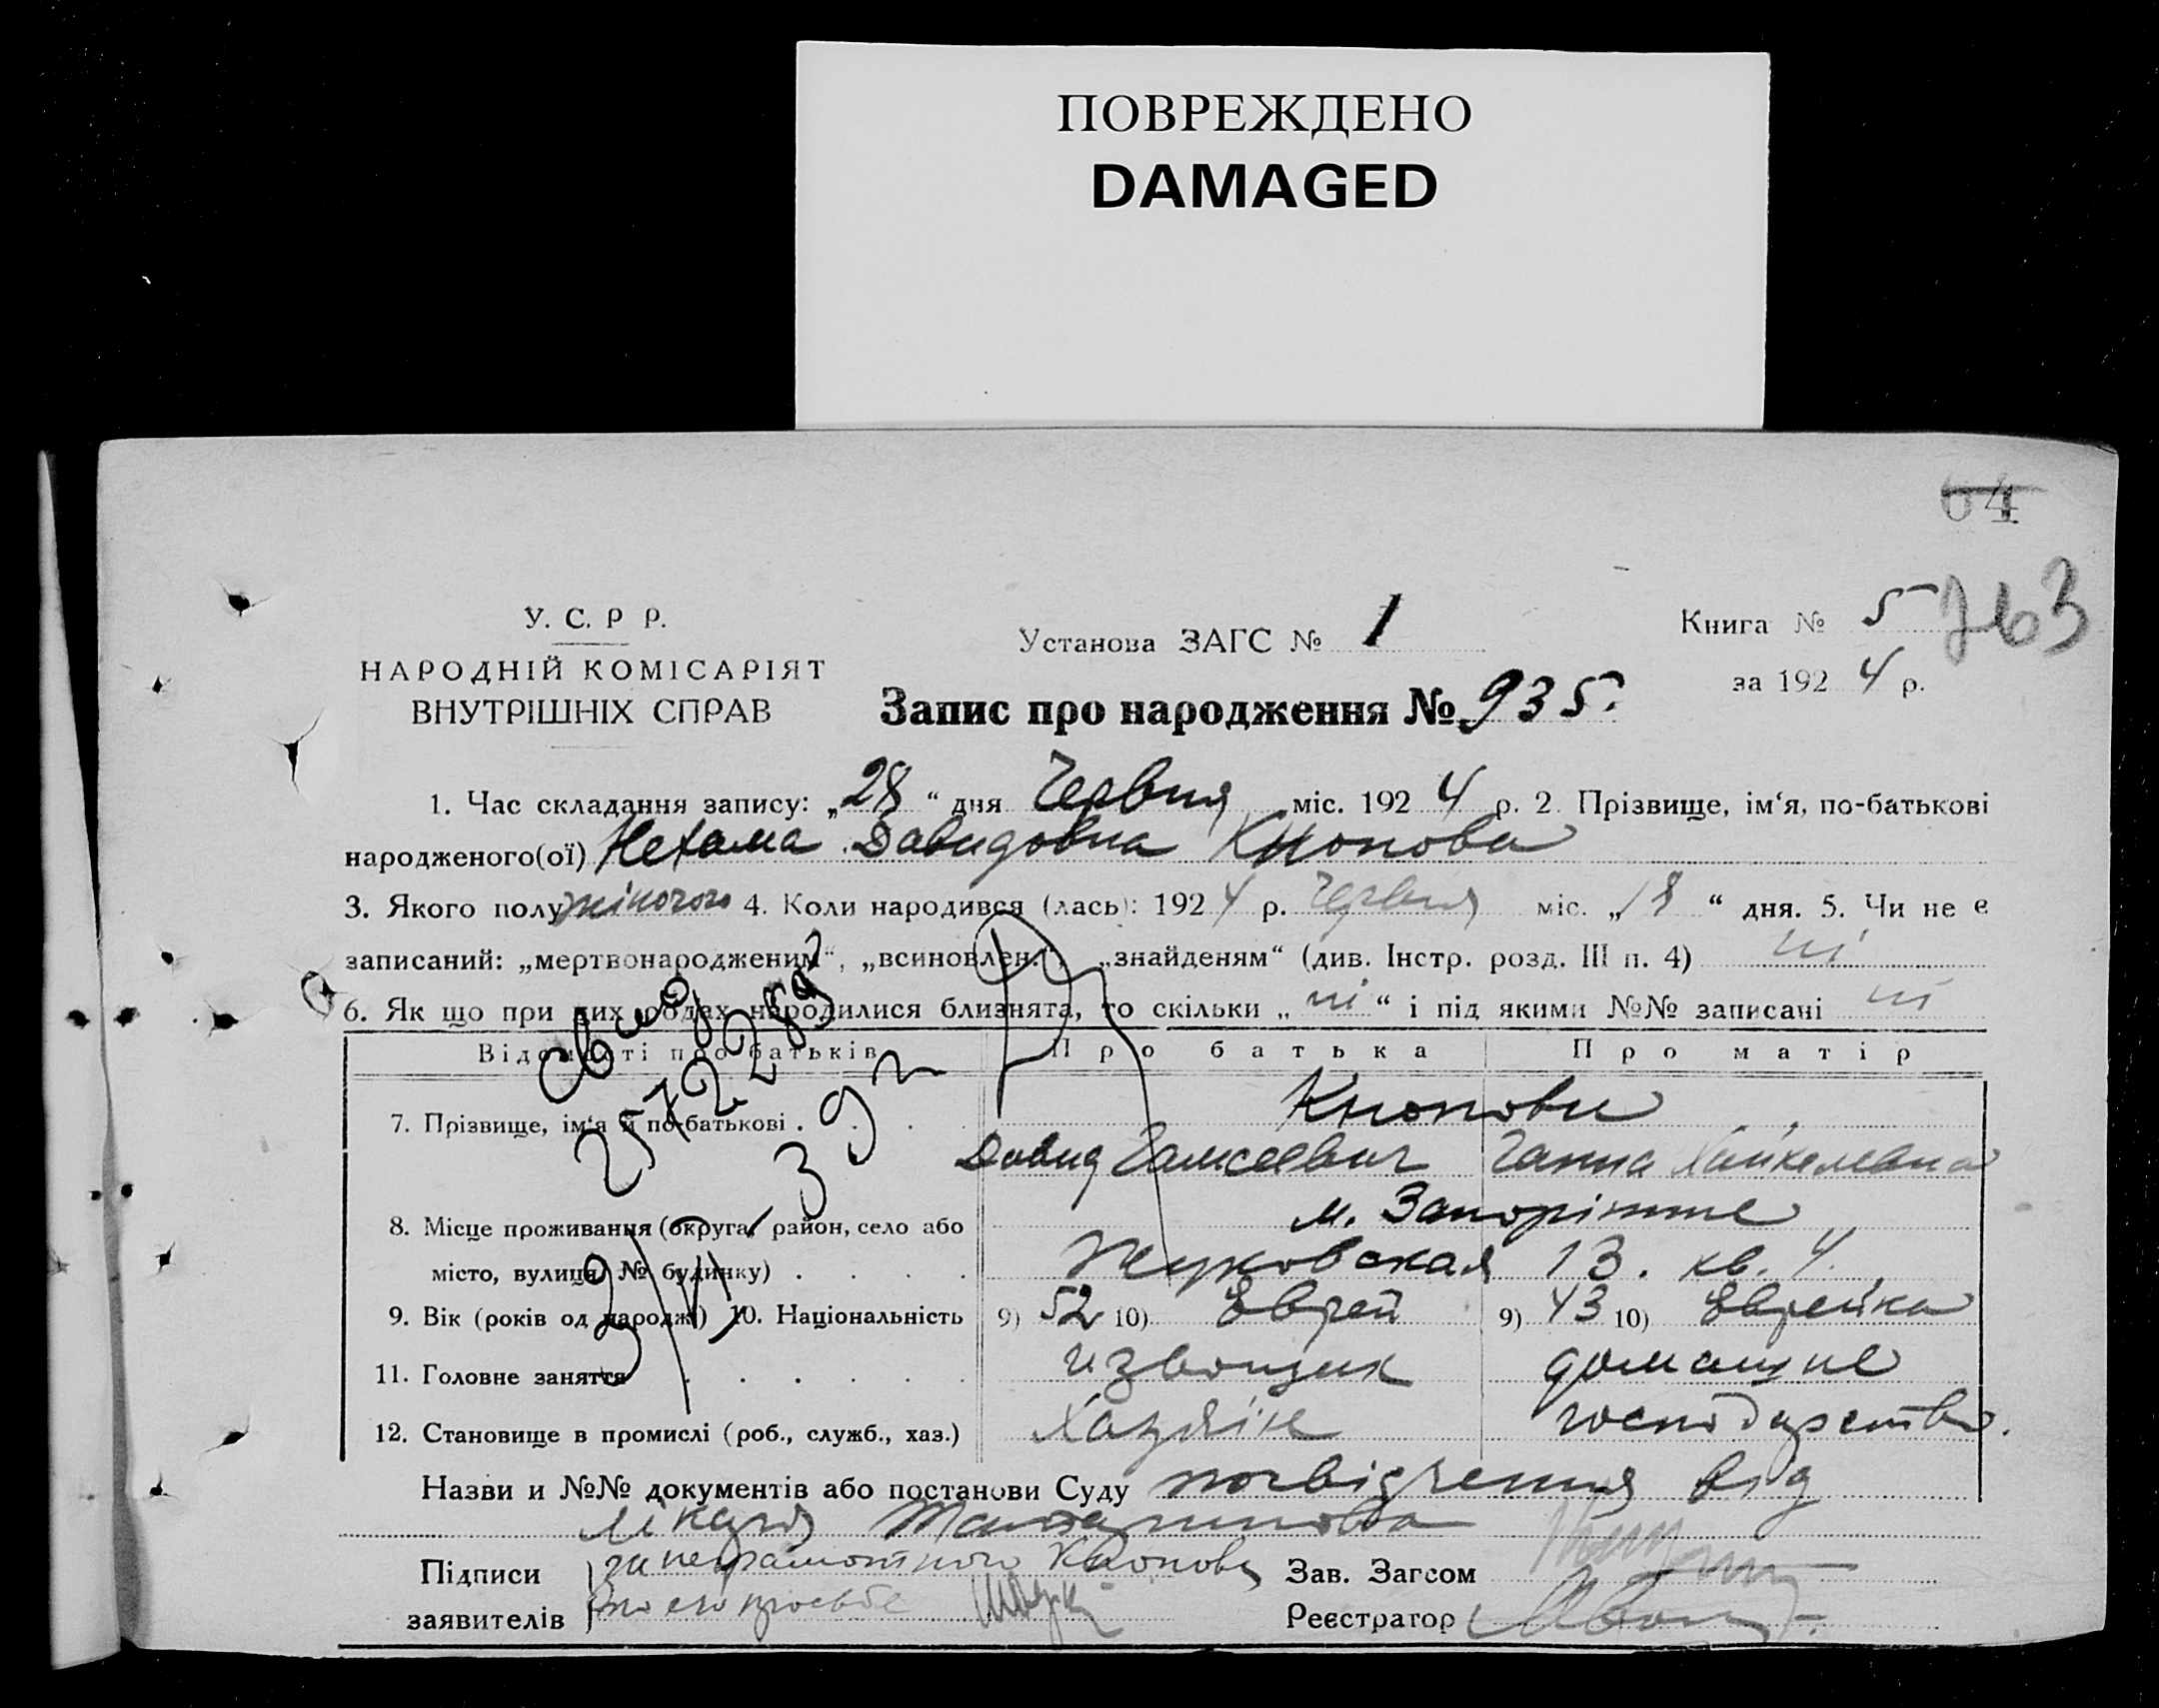 ПОВРЕЖДЕНО
DAMAGED
64
763
У. С. Р Р.
НАРОДНІЙ КОМІСАРІЯТ
ВНУТРІШНІХ СПРАВ
Установа ЗАГС № 1
Книга № 5
за 192 4 р.
Запис про народження № 935.
1. Час складання запису: „28“ дня Червня міс. 192 4 р. 2 Прізвище, ім‘я, по-батькові
народженого(ої) Нехама Давидовна Кнопова
3. Якого полу жіночого 4. Коли народився (лась): 192 4 р. Червня міс. „18“ дня. 5. Чи не є
записаний: „мертвонародженим“, „всиновлен.“, „знайденям“ (див. Інстр. розд. III п. 4) ні
6. Як що при цих родах народилися близнята, то скільки „ні“ і під якими №№ записані ні
Відомості про батьків
Про батька
Про матір
7. Прізвище, ім‘я й по-батькові . . .
Кнопови
Давид Ганна Хайкелевна
8. Місце проживання (округа, район, село або
м. Запоріжже
місто, вулиця, № будинку) . . . .
Жуковская 13. кв. 4.
9. Вік (років од народж.) 10. Національність
9) 52 10) Еврей
9) 43 10) Еврейка
11. Головне заняття . . . . . .
извощик
домашне
12. Становище в промислі (роб., служб., хаз.)
Хазяїн
господарство.
Назви и №№ документів або постанови Суду посвідчення від
лікаря
Підписи за неграмотного Кнопова Зав. Загсом
заявителів по его просьбе Реєстратор